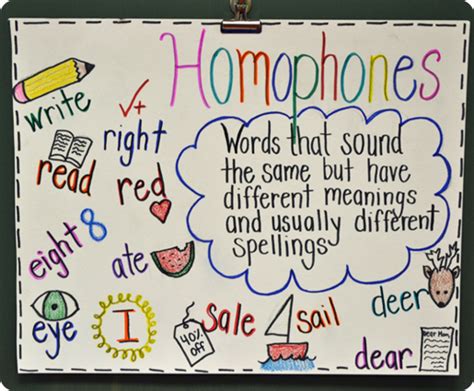 Homophones
write
✓+
right
Words that sound
the same but have
different meanings
and usually different
spellings
read
red
eight 8
ate
eye
I
40% off
sale
sail
deer
Dear Mom,
dear